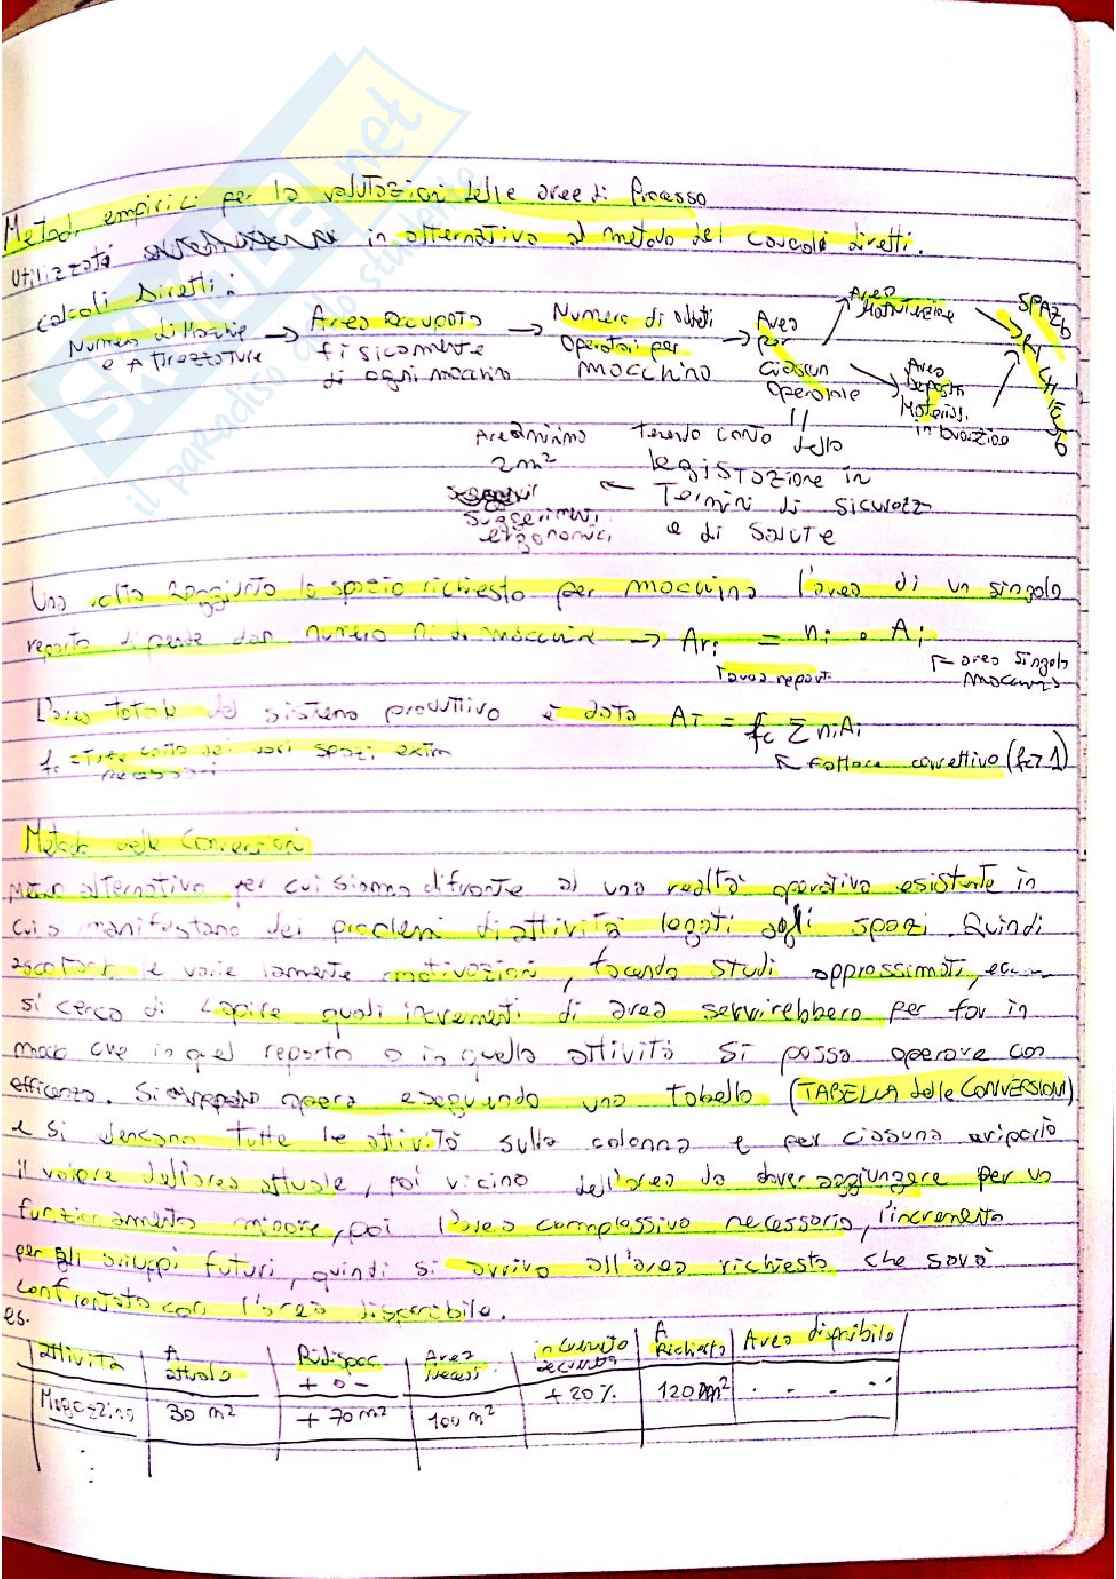 Metodi empirici per la valutazioni delle aree di Processo
Utilizzati in alternativa al metodo del calcolo diretti.
calcoli Diretti:
Numero di Macchie e Attrezzature → Area occupata fisicamente di ogni macchina → Numero di addetti Operatori per macchina → Area per ciascun operaio
Area Manutenzione
Area Deposito Materiali in lavorazione
SPAZIO RICHIESTO
Area minima 2m²
suggerimenti ergonomici
tenendo conto della legislazione in termini di sicurezza e di salute
Una volta raggiunto lo spazio richiesto per macchina l'area di un singolo
reparto dipende dal numero ni di macchine → Ari = ni • Ai
l'area reparti
area singola macchina
L'area totale del sistema produttivo è data AT = fc Σ niAi
fc tiene conto dei vari spazi extra necessari
Fattore correttivo (fc>1)
Metodo delle Conversioni
Metodo alternativo per cui siamo difronte ad una realtà operativa esistente in
cui si manifestano dei problemi di attività legati agli spazi. Quindi
ascoltando le varie lamentele motivazioni, facendo studi approssimati, ecc
si cerca di capire quali incrementi di area servirebbero per far in
modo che in quel reparto o in quella attività si possa operare con
efficenza. Si opera eseguendo una tabella (TABELLA delle CONVERSIONI)
e si elencano tutte le attività sulla colonna e per ciascuna riporto
il valore dell'area attuale, poi vicino dell'area da dover aggiungere per un
funzionamento migliore, poi l'area complessiva necessaria, l'incremento
per gli sviluppi futuri, quindi si arriva all'area richiesta che sarà
confrontata con l'area disponibile.
es.
attività A attuale Ridispoc + o - Area necess. incremento A Richiesta Area disponibile
Magazzino 30 m² + 70 m² 100 m² + 20% 120 m² . . . .